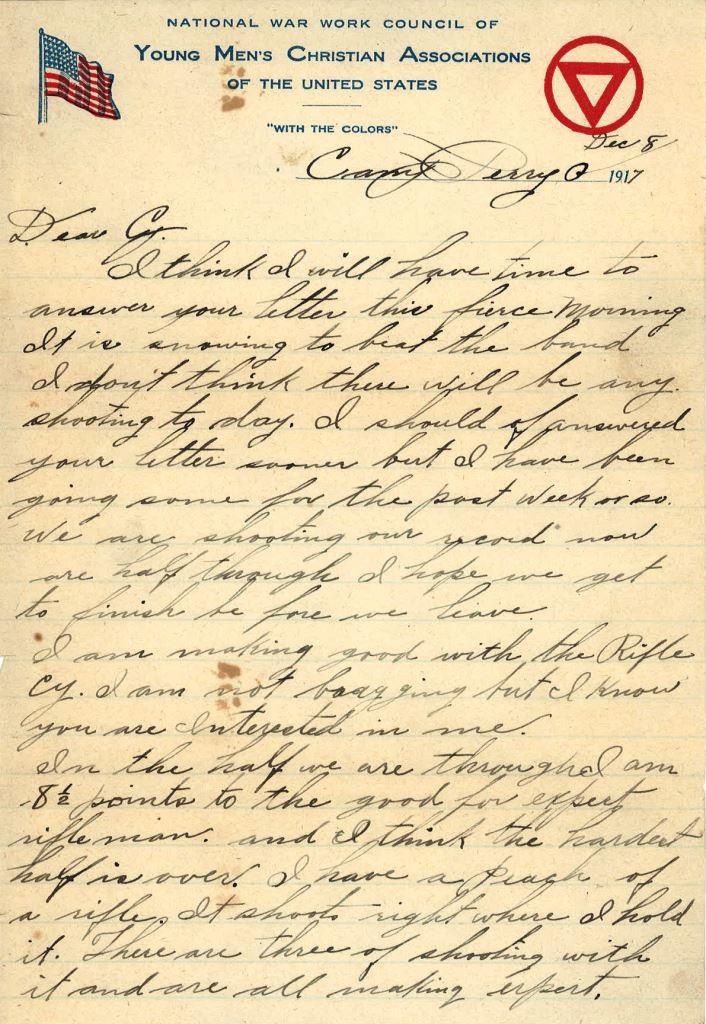 NATIONAL WAR WORK COUNCIL OF
YOUNG MEN'S CHRISTIAN ASSOCIATIONS
OF THE UNITED STATES
"WITH THE COLORS"
Dec 8
Camp Perry O 1917
Dear Cy.
I think I will have time to
answer your letter this fierce morning
It is snowing to beat the band
I don't think there will be any
shooting to day. I should of answered
your letter sooner but I have been
going some for the past week or so.
We are shooting our record now
are half through I hope we get
to finish be fore we leave.
I am making good with the Rifle
Cy. I am not bragging but I know
you are Interested in me.
In the half we are through I am
8½ points to the good for expert
rifle man. and I think the hardest
half is over. I have a peach of
a rifle. It shoots right where I hold
it. There are three of shooting with
it and are all making expert.